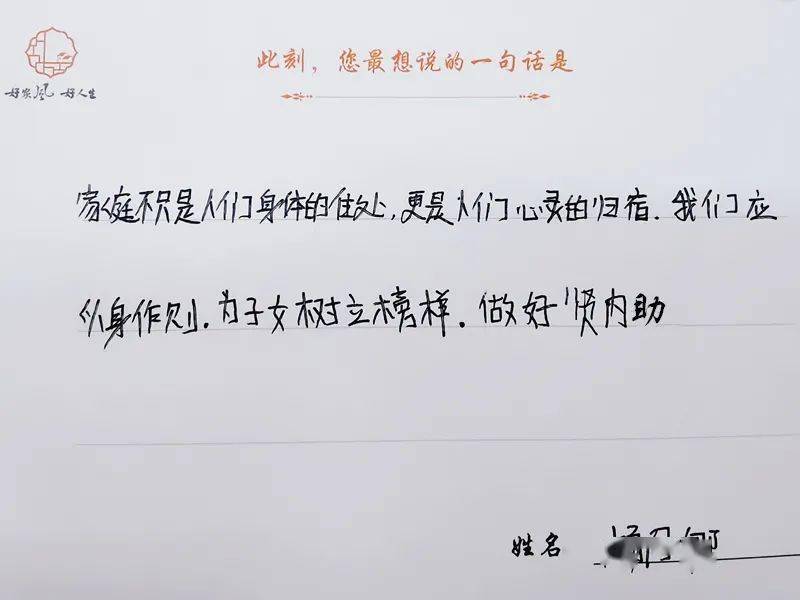 好家风 好人生
此刻，您最想说的一句话是
家庭不只是人们身体的住处，更是人们心灵的归宿.我们应
以身作则.为子女树立榜样.做好"贤内助
姓名